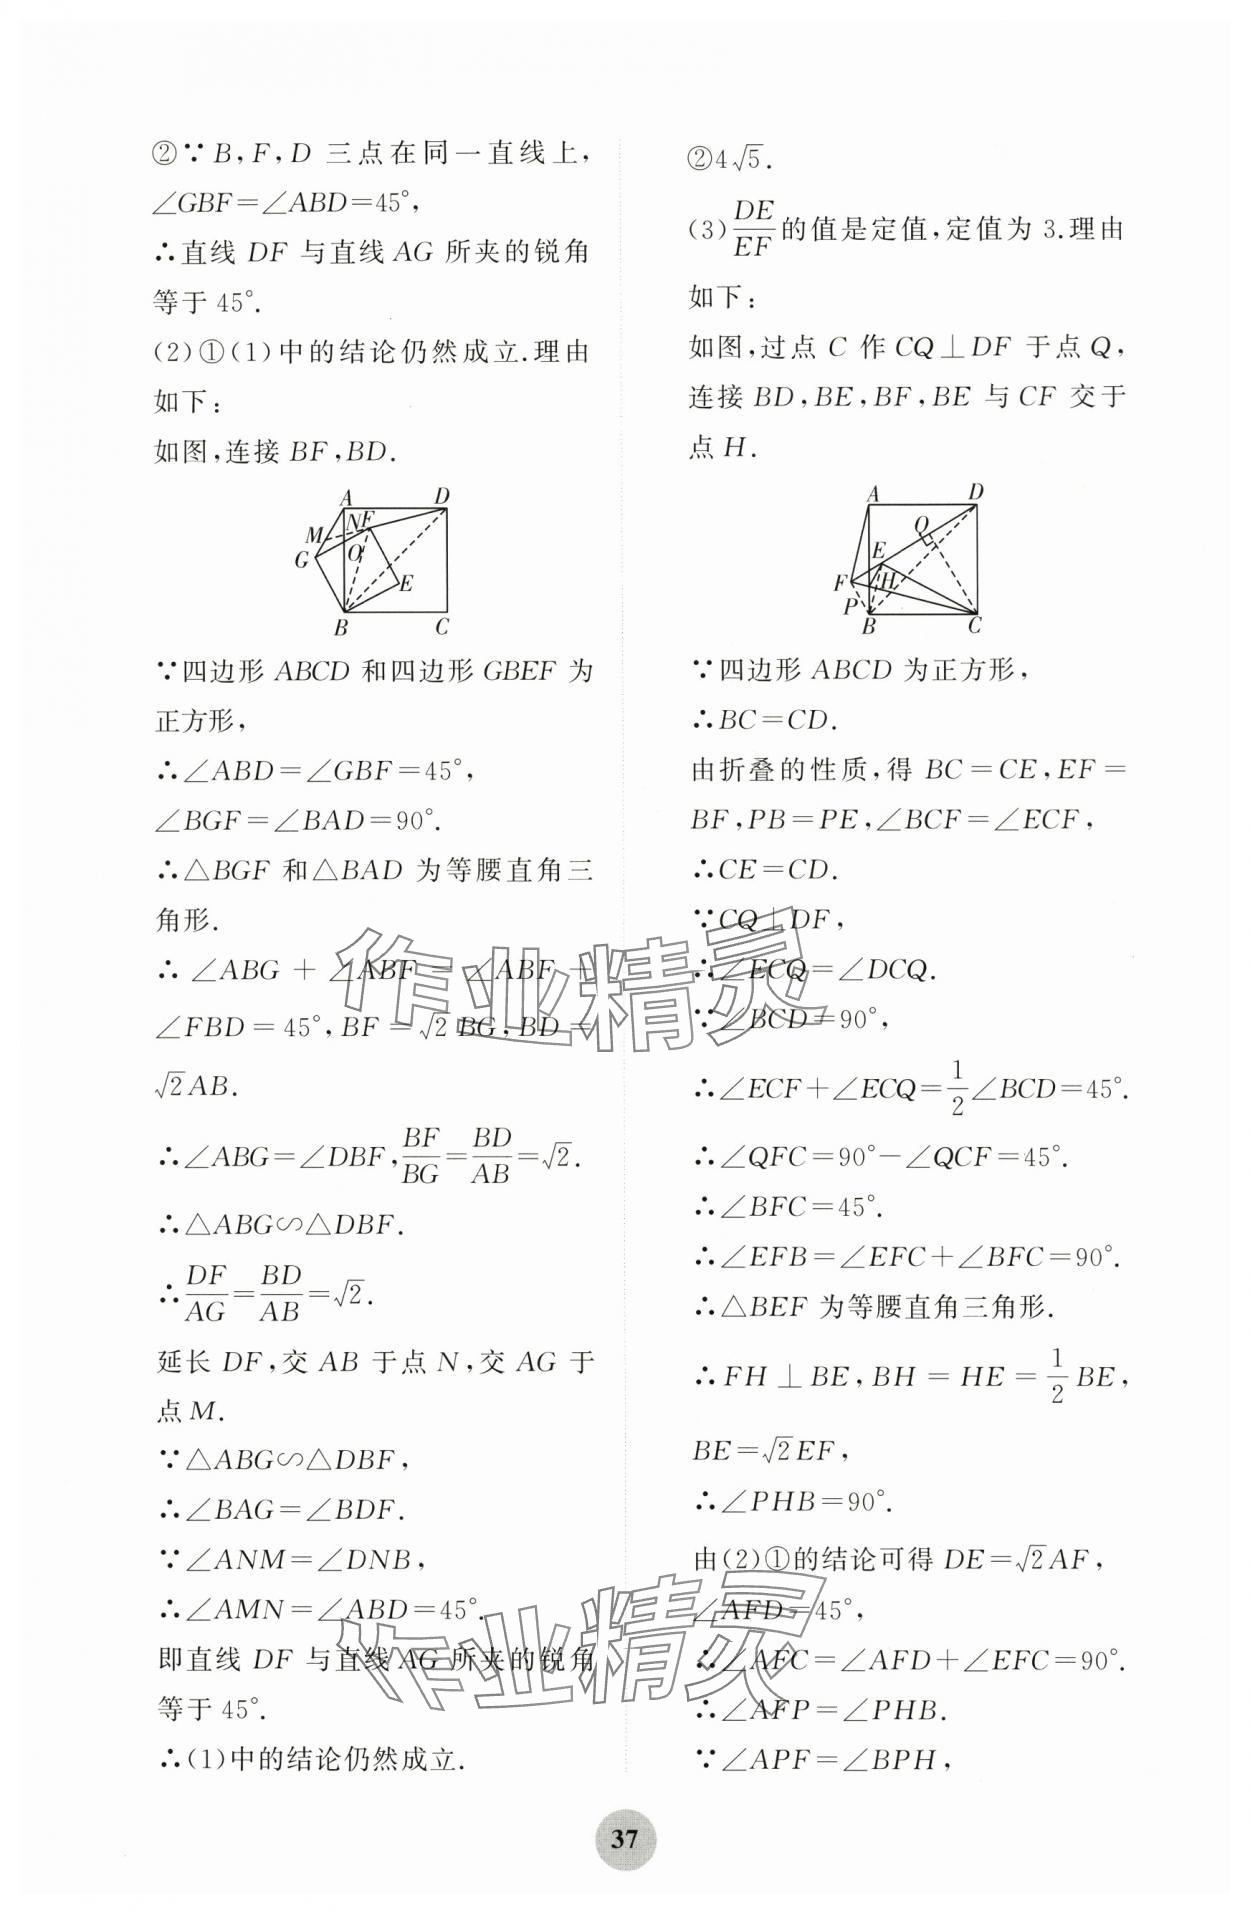 ②∵B,F,D 三点在同一直线上,
∠GBF=∠ABD=45°,
∴直线 DF 与直线 AG 所夹的锐角
等于 45°.
(2)①(1)中的结论仍然成立.理由
如下:
如图,连接 BF,BD.
A D
M N F
G O
E
B C
∵四边形 ABCD 和四边形 GBEF 为
正方形,
∴∠ABD=∠GBF=45°,
∠BGF=∠BAD=90°.
∴△BGF 和△BAD 为等腰直角三
角形.
∴∠ABG+∠ABF=∠ABF+
∠FBD=45°,BF=√2BG,BD=
√2AB.
∴∠ABG=∠DBF,BF/BG=BD/AB=√2.
∴△ABG∽△DBF.
∴DF/AG=BD/AB=√2.
延长 DF,交 AB 于点 N,交 AG 于
点 M.
∵△ABG∽△DBF,
∴∠BAG=∠BDF.
∵∠ANM=∠DNB,
∴∠AMN=∠ABD=45°.
即直线 DF 与直线 AG 所夹的锐角
等于 45°.
∴(1)中的结论仍然成立.
②4√5.
(3)DE/EF的值是定值,定值为 3.理由
如下:
如图,过点 C 作 CQ⊥DF 于点 Q,
连接 BD,BE,BF,BE 与 CF 交于
点 H.
A D
Q
E
F H
P
B C
∵四边形 ABCD 为正方形,
∴BC=CD.
由折叠的性质,得 BC=CE,EF=
BF,PB=PE,∠BCF=∠ECF,
∴CE=CD.
∵CQ⊥DF,
∴∠ECQ=∠DCQ.
∵∠BCD=90°,
∴∠ECF+∠ECQ=1/2∠BCD=45°.
∴∠QFC=90°-∠QCF=45°.
∴∠BFC=45°.
∴∠EFB=∠EFC+∠BFC=90°.
∴△BEF 为等腰直角三角形.
∴FH⊥BE,BH=HE=1/2BE,
BE=√2EF,
∴∠PHB=90°.
由(2)①的结论可得 DE=√2AF,
∠AFD=45°,
∴∠AFC=∠AFD+∠EFC=90°.
∴∠AFP=∠PHB.
∵∠APF=∠BPH,
作业精灵
作业精灵
37